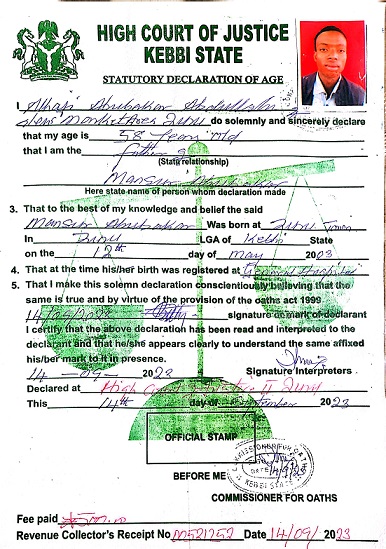 HIGH COURT OF JUSTICE
KEBBI STATE
STATUTORY DECLARATION OF AGE
I Alhaji Abubakar Abdullahi
do solemnly and sincerely declare
that my age is 58 Years Old
that I am the Father
(State relationship)
Mansur Abubakar
Here state name of person whom declaration made
3. That to the best of my knowledge and belief the said
Mansur Abubakar Was born at Zuru
In Zuru LGA of Kebbi State
on the 12th day of May 2003
4. That at the time his/her birth was registered at General Hospital
5. That I make this solemn declaration conscientiously believing that the
same is true and by virtue of the provision of the oaths act 1999
signature or mark of declarant
I certify that the above declaration has been read and interpreted to the
declarant and that he/she appears clearly to understand the same affixed
his/ber mark to it in presence.
14 - 09 - 2023 Signature Interpreters
Declared at High Court of Justice II Zuru
This 14th day of September 2023
OFFICIAL STAMP
COMMISSIONER FOR OATHS
DATE 14/9/23
KEBBI STATE
BEFORE ME
COMMISSIONER FOR OATHS
Fee paid
Revenue Collector's Receipt No M521252 Date 14/09/2023